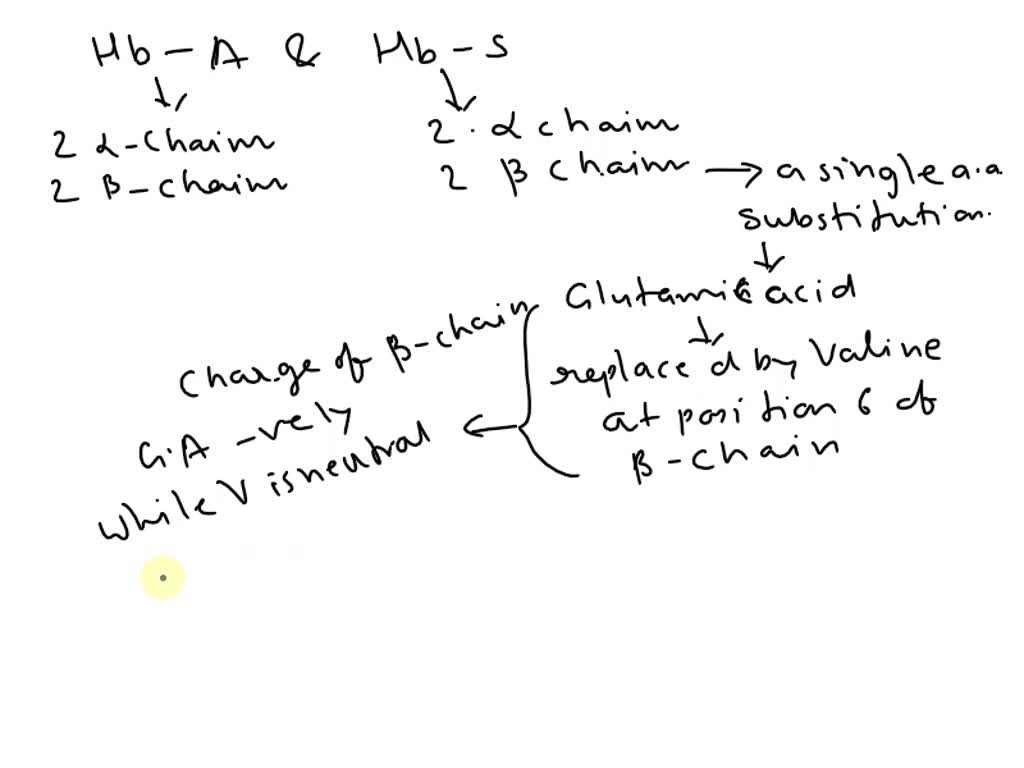 Hb-A & Hb-S
2 α-chain
2 β-chain
2 · α chain
2 β chain → a single a.a
substitution.
Glutamic acid
replaced by Valine
at position 6 of
β-chain
Charge of β-chain
G.A -vely
while V is neutral